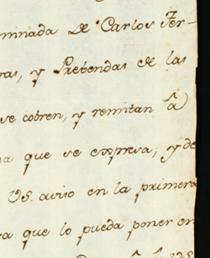 minada de Carlos Fer-
ras, y Pretendas de las
se cobren, y remitan â
na que se expresa, y de
VS. aviso en la primera
ra que lo pueda poner en